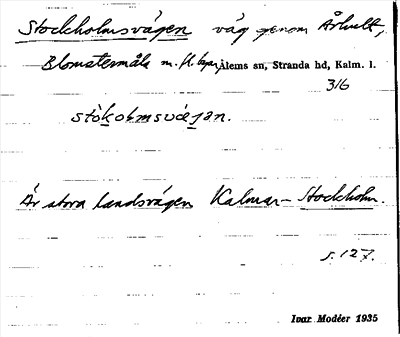 Stockholmsvägen väg genom Århult,
Blomstermåla m. fl. byar, Ålems sn, Stranda hd, Kalm. l.
316
stòkolmsvä̀jan.
Är stora landsvägen Kalmar–Stockholm.
s. 127.
Ivar Modéer 1935